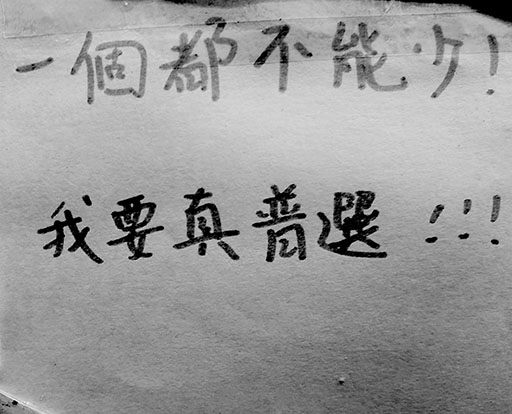 一個都不能少!
我要真普選!!!